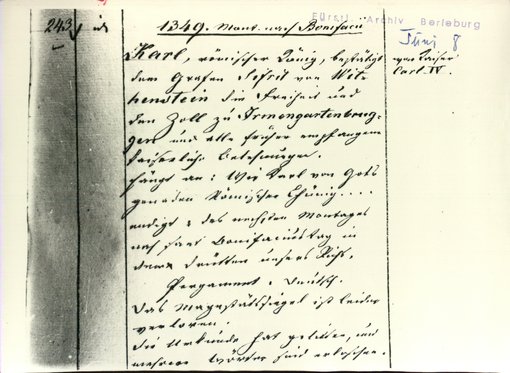 243, id 1349. Mont. nach Bonifacii
Fürstl. Archiv Berleburg
Juni 8
Karl, römischer König, bestätigt
von Kaiser
Carl IV.
dem Grafen Sifrit von Wit-
genstein die Freiheit und
den Zoll zu Irmengartenbrug-
gen und alle früher empfangene
kaiserliche Belehnungen.
fängt an: Wir Karl von Gots
genaden Römischer Chünig....
endigt: des nechsten Montages
nach sant Bonifaciustag in
dem dritten unsers Richs.
Pergament. Deutsch.
Das Majestätssiegel ist leider
verloren.
Die Urkunde hat gelitten, und
mehrere Wörter sind erloschen.